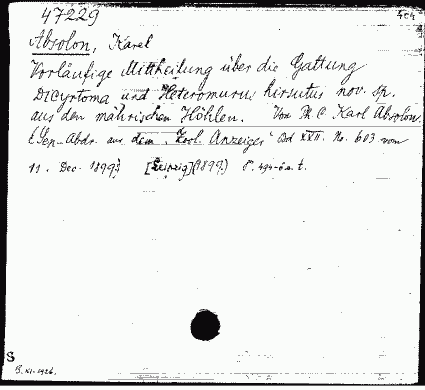 47229
Absolon, Karel
Vorläufige Mittheilung über die Gattung
Dicyrtoma und Heteromurus hirsutus nov. sp.
aus den mährischen Höhlen. Von Ph. C. Karl Absolon.
(Sep.-Abdr. aus dem "Zool. Anzeiger" Bd XXII. No. 603 vom
11. Dec. 1899.) [Leipzig] (1899.) 8°.
S
XI-1926.